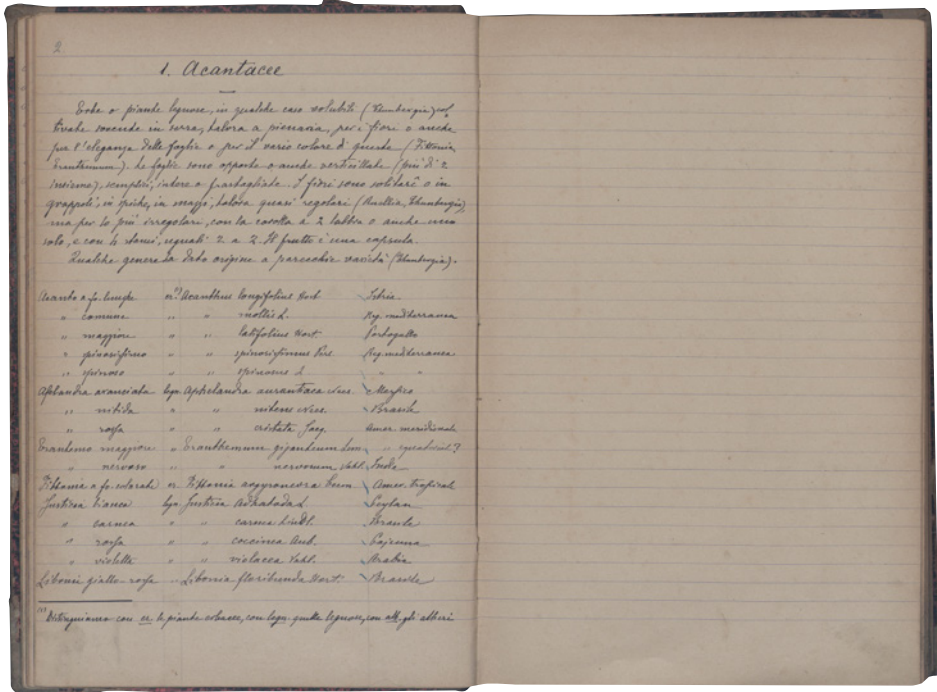 2.
1. Acantacee
Erbe o piante legnose, in qualche caso volubili (Thunbergia) col
tivate sovente in serra, talora a pienaria, per i fiori o anche
per l'eleganza delle foglie o per il vario colore di queste (Fittonia,
Erantemum). Le foglie sono opposte o anche verticillate (più di 2
insieme), semplici, intere o frastagliate. I fiori sono solitarî o in
grappoli, in spiche, in mazzi, talora quasi regolari (Ruellia, Thunbergia),
ma per lo più irregolari, con la corolla a 2 labbra o anche uno
solo, e con 4 stami, uguali 2 a 2. Il frutto è una capsula.
Qualche genere ha dato origine a parecchie varietà (Thunbergia).
Acanto a fo. lunghe er.(1) Acanthus longifolius Hort. Istria
" comune " " mollis L. Reg. mediterranea
" maggiore " " latifolius Hort. Portogallo
" spinosissimo " " spinosissimus Pers. Reg. mediterranea
" spinoso " " spinosus L " "
Afelandra aranciata lgn. Aphelandra aurantiaca Nees. Messico
" nitida " " nitens Nees. Brasile
" rossa " " cristata Jacq. Amer. meridionale
Erantemo maggiore " Eranthemum giganteum " "
" nervoso " " nervosum Vahl. India
Fittonia a fo. colorate er. Fittonia argyroneura Amer. tropicale
Justicia bianca lgn. Justicia Adhatoda L Ceylan
" carnea " " carnea Lindl. Brasile
" rossa " " coccinea Aub. Cajenna
" violetta " " violacea Vahl. Arabia
Libonia giallo-rossa " Libonia floribunda Hort. Brasile
(1) Distinguiamo con er. le piante erbacee, con legn. quelle legnose, con alb. gli alberi